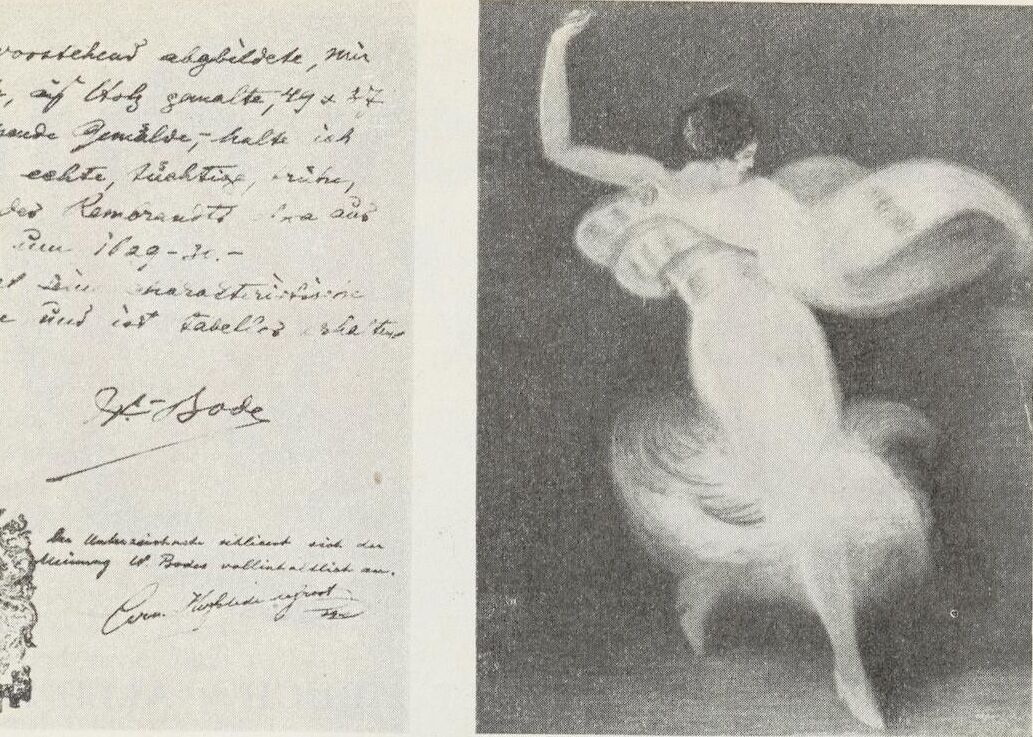 vorstehend abgbildete, mir
auf Holz gemalte, 49 x 37
Gemälde, - halte ich
echte, tüchtige,
des Rembrandts aus
um 1629-30.-
charakteristische
und ist tabellos erhalten
W. Bode
Der Unterzeichnete schliesst sich der
Meinung W Bodes vollinhaltlich an.
Corn. Hofstede de groot